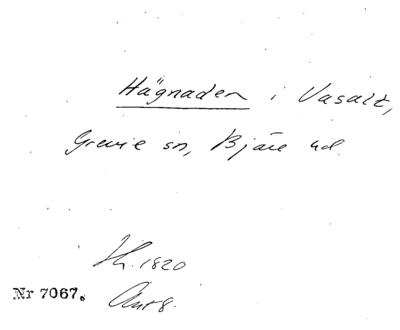 Hägnaden i Vasalt,
Grevie sn, Bjäre hd.
H. 1820
Nr 7067.